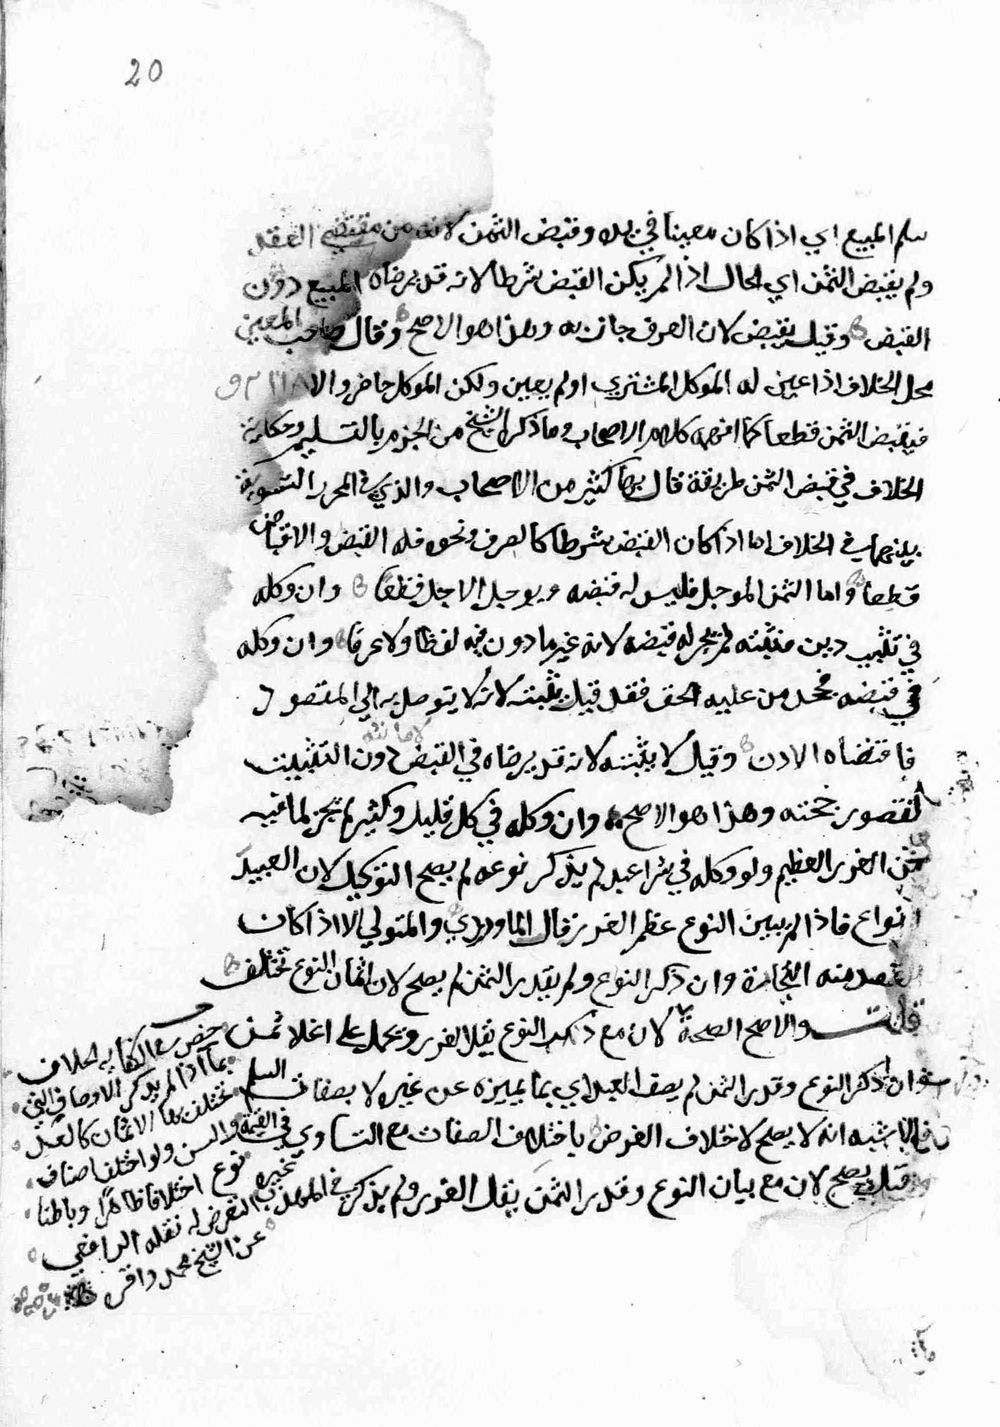 20
سلم المبيع اي اذا كان معينا في يده وقبض الثمن لانه من مقتضي العقد
ولم يقبض الثمن اي الحال اذا لم يكن القبض شرطا لانه قد يرضاه المبيع دون
القبض وقيل يقبض لان العرف جاز به وهذا هو الاصح وقال صاحب المعين
محل الخلاف اذا عين له الموكل المشتري اولم يعين ولكن الموكل حاضر والا
فيقبض الثمن قطعا كما افهمه كلام الاصحاب وما ذكر الشيخ من الجزم بالتسليم وحكاية
الخلاف في قبض الثمن طريقة قال بها كثير من الاصحاب والذي في المحرر التسوية
بينهما في الخلاف اما اذا كان القبض شرطا كالصرف ونحوه فله القبض والاقباض
قطعا واما الثمن الموجل فليس له قبضه ويوجل الاجل قطعا وان وكله
في تثبيت دين فثبته لم يجز له قبضه لانه غير ما دون فيه لفظا ولا عرفا وان وكله
في قبضه فجحد من عليه الحق فقد قيل يثبته لانه لا يتوصل به الي المقصود
لاما نثه
فاقتضاه الاذن وقيل لا يثبته لانه قد يرضاه في القبض دون التثبيت
لقصور حجته وهذا هو الاصح وان وكله في كل قليل وكثير لم يجز لما فيه
من الغرر العظيم ولو وكله في شرا عبد لم يذكر نوعه لم يصح التوكيل لان العبيد
انواع فاذا لم يبين النوع عظم الغرر قال الماوردي والمتولي الا اذا كان
القصد منه التجارة وان ذكر النوع ولم يقدر الثمن لم يصح لان اثمان النوع تختلف
قلت والاصح الصحة لان مع ذكر النوع يقل الغرر ويحمل علي اغلا ثمن
وان ذكر النوع وقدر الثمن لم يصف العبد اي بما يميزه عن غيره لا بصفات السلم
فالاشبه انه لا يصح لاختلاف الغرض باختلاف الصفات مع التساوي في القيمة
وقيل يصح لان مع بيان النوع وقدر الثمن يقل الغرر ولم يذكر في المهذب غيره
خص في الكفاية الخلاف
بما اذا لم يذكر الاوصاف التي
تختلف بها الاثمان كالعد
والسن ولو اختلف اصناف
نوع اختلافا ظاهرا وباطنا
التعرض له نقله الرافعي
عن الشيخ محمد واقره